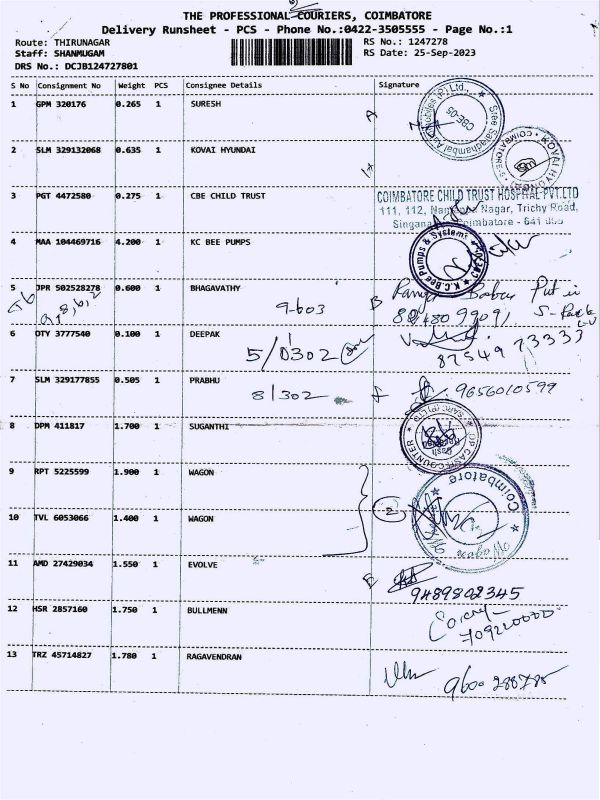 THE PROFESSIONAL COURIERS, COIMBATORE
Delivery Runsheet - PCS - Phone No.:0422-3505555 - Page No.:1
Route: THIRUNAGAR RS No.: 1247278
Staff: SHANMUGAM RS Date: 25-Sep-2023
DRS No.: DCJB124727801
S No Consignment No Weight PCS Consignee Details Signature
1 GPM 320176 0.265 1 SURESH
2 SLM 329132068 0.635 1 KOVAI HYUNDAI
3 PGT 4472580 0.275 1 CBE CHILD TRUST
COIMBATORE CHILD TRUST HOSPITAL PVT.LTD
111, 112, Nagar, Trichy Road,
Coimbatore - 641 005
4 MAA 104469716 4.200 1 KC BEE PUMPS
K.C.Bee Pumps & Systems
5 JPR 502528278 0.600 1 BHAGAVATHY
9-603 B
6 OTY 3777540 0.100 1 DEEPAK
5/0302 87549 73333
7 SLM 329177855 0.505 1 PRABHU
8/302 9656010599
8 DPM 411817 1.700 1 SUGANTHI
OP CASH COUNTER
9 RPT 5225599 1.900 1 WAGON
Coimbatore
10 TVL 6053066 1.400 1 WAGON
2
11 AMD 27429034 1.550 1 EVOLVE
9489802345
12 HSR 2857160 1.750 1 BULLMENN
13 TRZ 45714827 1.780 1 RAGAVENDRAN